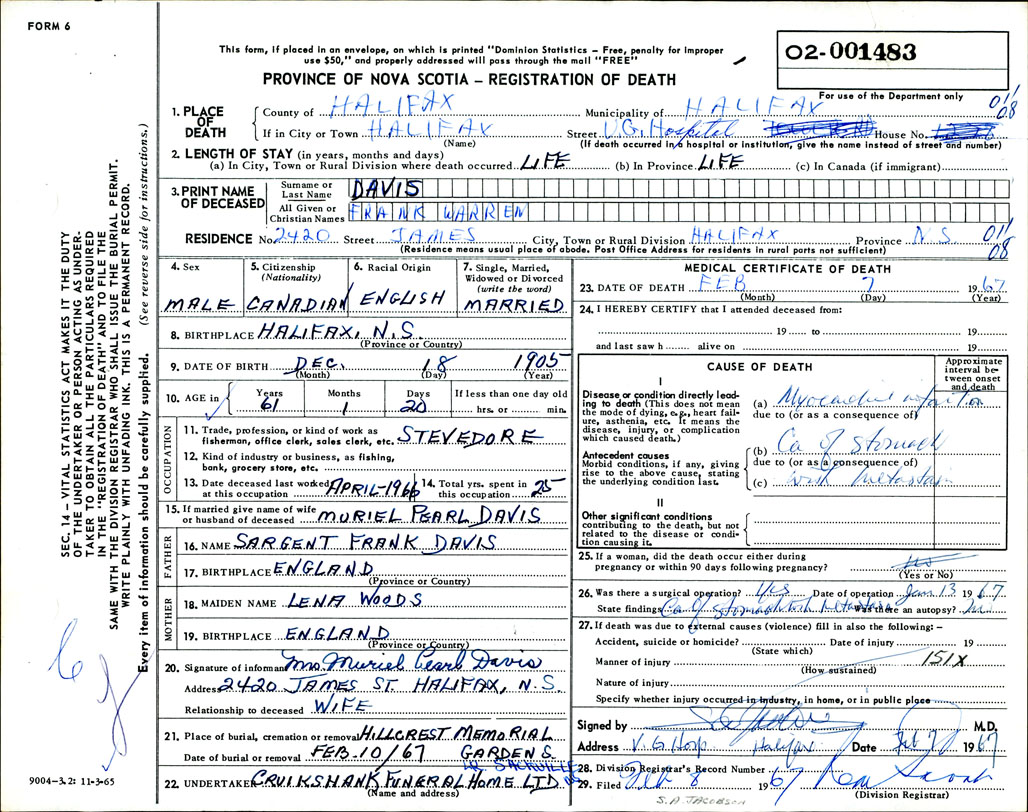 FORM 6
This form, if placed in an envelope, on which is printed "Dominion Statistics – Free, penalty for improper
use $50," and properly addressed will pass through the mail "FREE"
PROVINCE OF NOVA SCOTIA – REGISTRATION OF DEATH
02-001483
For use of the Department only
011
08
1. PLACE OF DEATH
County of HALIFAX Municipality of HALIFAX
If in City or Town HALIFAX Street V.G. Hospital House No.
(Name) (If death occurred in a hospital or institution, give the name instead of street and number)
2. LENGTH OF STAY (in years, months and days)
(a) In City, Town or Rural Division where death occurred LIFE (b) In Province LIFE (c) In Canada (if immigrant)
3. PRINT NAME OF DECEASED
Surname or Last Name DAVIS
All Given or Christian Names FRANK WARREN
RESIDENCE No. 2420 Street JAMES City, Town or Rural Division HALIFAX Province N.S. 011
(Residence means usual place of abode. Post Office Address for residents in rural parts not sufficient) 08
4. Sex
MALE
5. Citizenship (Nationality)
CANADIAN
6. Racial Origin
ENGLISH
7. Single, Married, Widowed or Divorced (write the word)
MARRIED
8. BIRTHPLACE HALIFAX, N.S.
(Province or Country)
9. DATE OF BIRTH DEC. 18 1905
(Month) (Day) (Year)
10. AGE in Years Months Days If less than one day old
61 1 20 hrs. or min.
OCCUPATION
11. Trade, profession, or kind of work as
fisherman, office clerk, sales clerk, etc. STEVEDORE
12. Kind of industry or business, as fishing,
bank, grocery store, etc.
13. Date deceased last worked at this occupation APRIL-1966
14. Total yrs. spent in this occupation 25
15. If married give name of wife
or husband of deceased MURIEL PEARL DAVIS
FATHER
16. NAME SARGENT FRANK DAVIS
17. BIRTHPLACE ENGLAND
(Province or Country)
MOTHER
18. MAIDEN NAME LENA WOODS
19. BIRTHPLACE ENGLAND
(Province or Country)
20. Signature of informant Mrs Muriel Pearl Davis
Address 2420 JAMES ST. HALIFAX, N.S.
Relationship to deceased WIFE
21. Place of burial, cremation or removal HILLCREST MEMORIAL
Date of burial or removal FEB. 10/67 GARDENS
SACKVILLE
22. UNDERTAKER CRUIKSHANK FUNERAL HOME LTD
(Name and address)
MEDICAL CERTIFICATE OF DEATH
23. DATE OF DEATH FEB 7 1967
(Month) (Day) (Year)
24. I HEREBY CERTIFY that I attended deceased from:
19 to 19
and last saw h alive on 19
CAUSE OF DEATH
Approximate interval between onset and death
I
Disease or condition directly leading to death (This does not mean the mode of dying, e.g., heart failure, asthenia, etc. It means the disease, injury, or complication which caused death.)
(a) Myocardial infarction
due to (or as a consequence of)
Antecedent causes
Morbid conditions, if any, giving rise to the above cause, stating the underlying condition last.
(b) Ca of stomach
due to (or as a consequence of)
(c) with metastasis
II
Other significant conditions
contributing to the death, but not related to the disease or condition causing it.
25. If a woman, did the death occur either during
pregnancy or within 90 days following pregnancy?
(Yes or No)
26. Was there a surgical operation? Yes Date of operation Jan. 13 1967
State findings Ca of stomach with metastasis Was there an autopsy? No
27. If death was due to external causes (violence) fill in also the following: –
Accident, suicide or homicide? Date of injury 19
(State which)
Manner of injury 151X
(How sustained)
Nature of injury
Specify whether injury occurred in industry, in home, or in public place
Signed by M.D.
Address V.G. Hosp Halifax Date Feb 7 1967
28. Division Registrar's Record Number
29. Filed Feb 8 1967
(Division Registrar)
S.A. JACOBSON
SEC. 14 – VITAL STATISTICS ACT MAKES IT THE DUTY
OF THE UNDERTAKER OR PERSON ACTING AS UNDER-
TAKER TO OBTAIN ALL THE PARTICULARS REQUIRED
IN THE "REGISTRATION OF DEATH" AND TO FILE THE
SAME WITH THE DIVISION REGISTRAR WHO SHALL ISSUE THE BURIAL PERMIT.
WRITE PLAINLY WITH UNFADING INK. THIS IS A PERMANENT RECORD.
Every item of information should be carefully supplied. (See reverse side for instructions.)
9004-3.2: 11-3-65